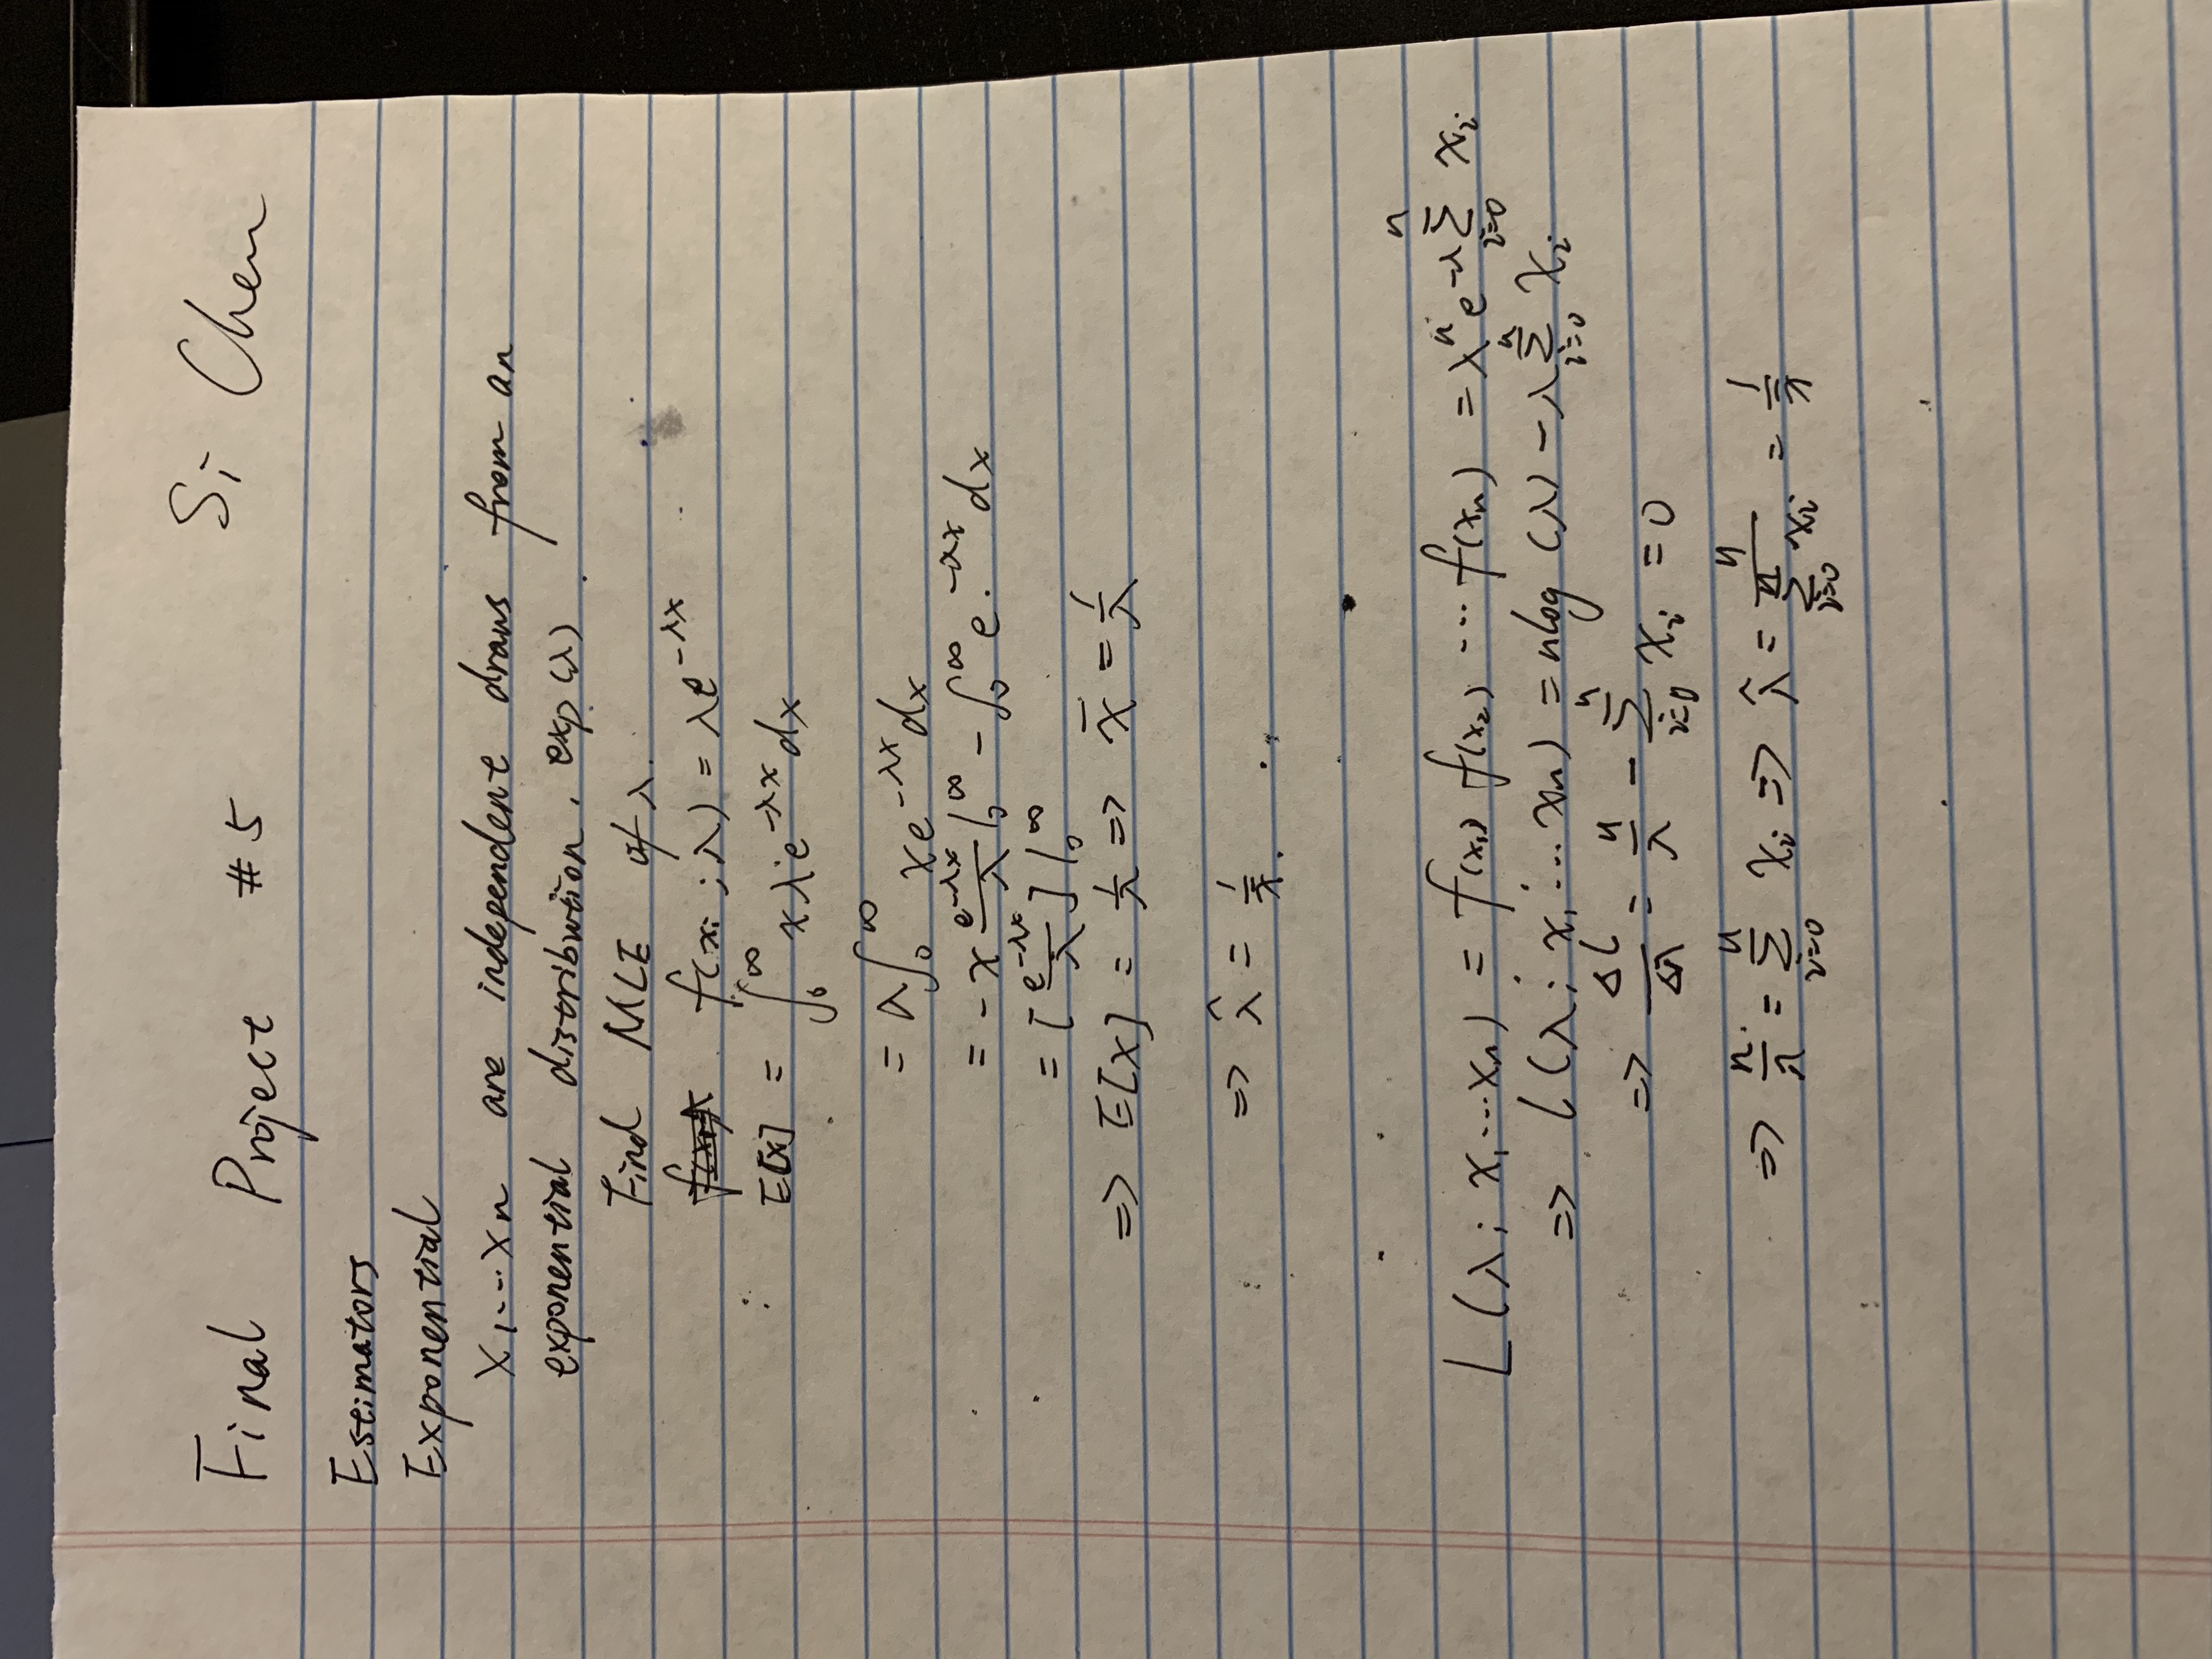 Final Project #5 Si Chen
Estimators
Exponential
X1...Xn are independent draws from an
exponential distribution. exp(λ).
Find MLE of λ.
f(xi;λ) = λe^-λx
E[x] = ∫₀^∞ xλe^-λx dx
= λ∫₀^∞ xe^-λx dx
= -x e^-λx/λ |₀^∞ - ∫₀^∞ e^-λx dx
= [e^-λx/λ] |₀^∞
=> E[x] = 1/λ => x̄ = 1/λ
=> λ̂ = 1/x̄.
L(λ; x1...xn) = f(x1) f(x2) ... f(xn) = λ^n e^-λ Σ_{i=0}^n xi
=> l(λ; x1...xn) = nlog(λ) - λ Σ_{i=0}^n xi
=> Δl/Δλ = n/λ - Σ_{i=0}^n xi = 0
=> n/λ = Σ_{i=0}^n xi => λ̂ = n/Σ_{i=0}^n xi = 1/x̄